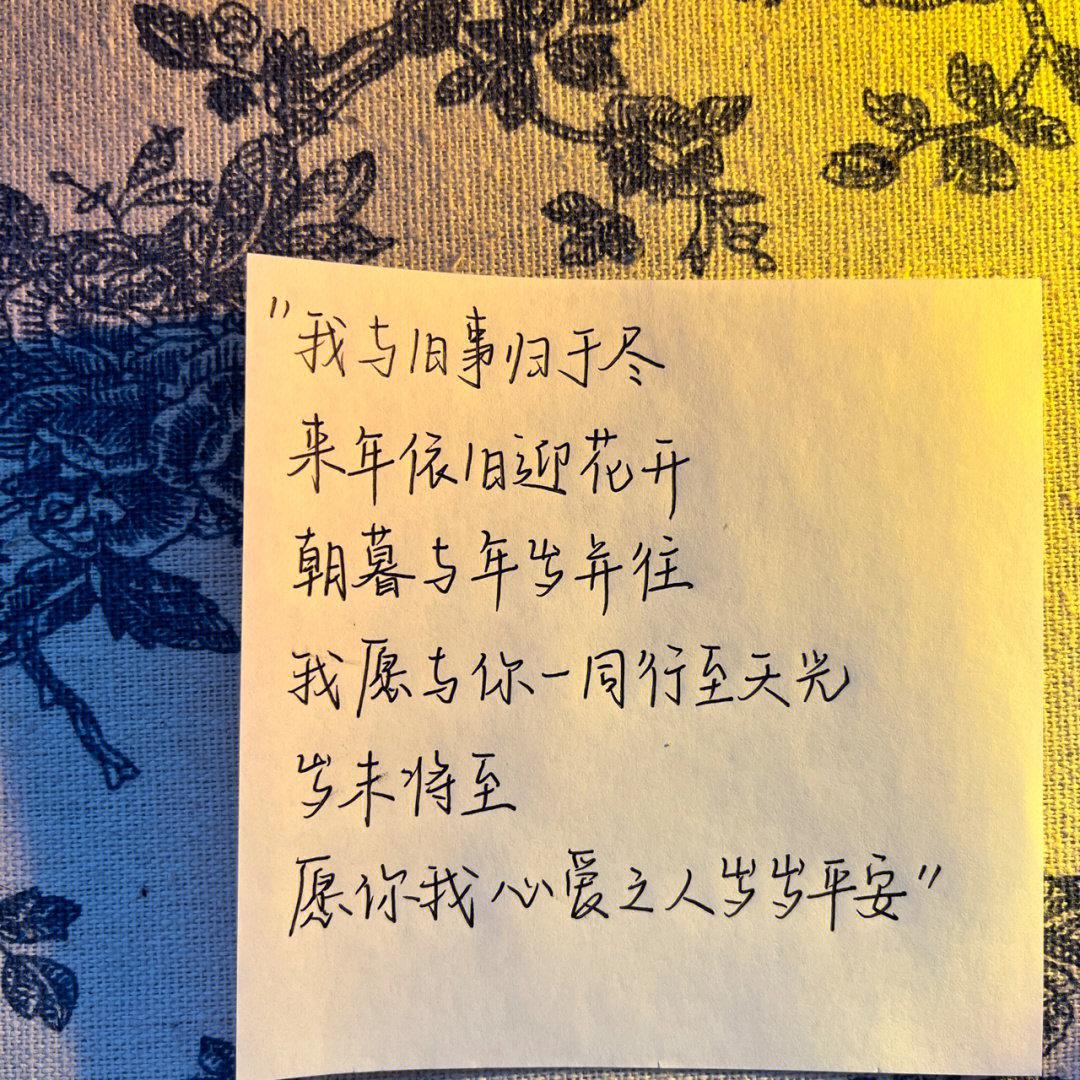 "我与旧事归于尽
来年依旧迎花开
朝暮与年岁并往
我愿与你一同行至天光
岁末将至
愿你我心爱之人岁岁平安"